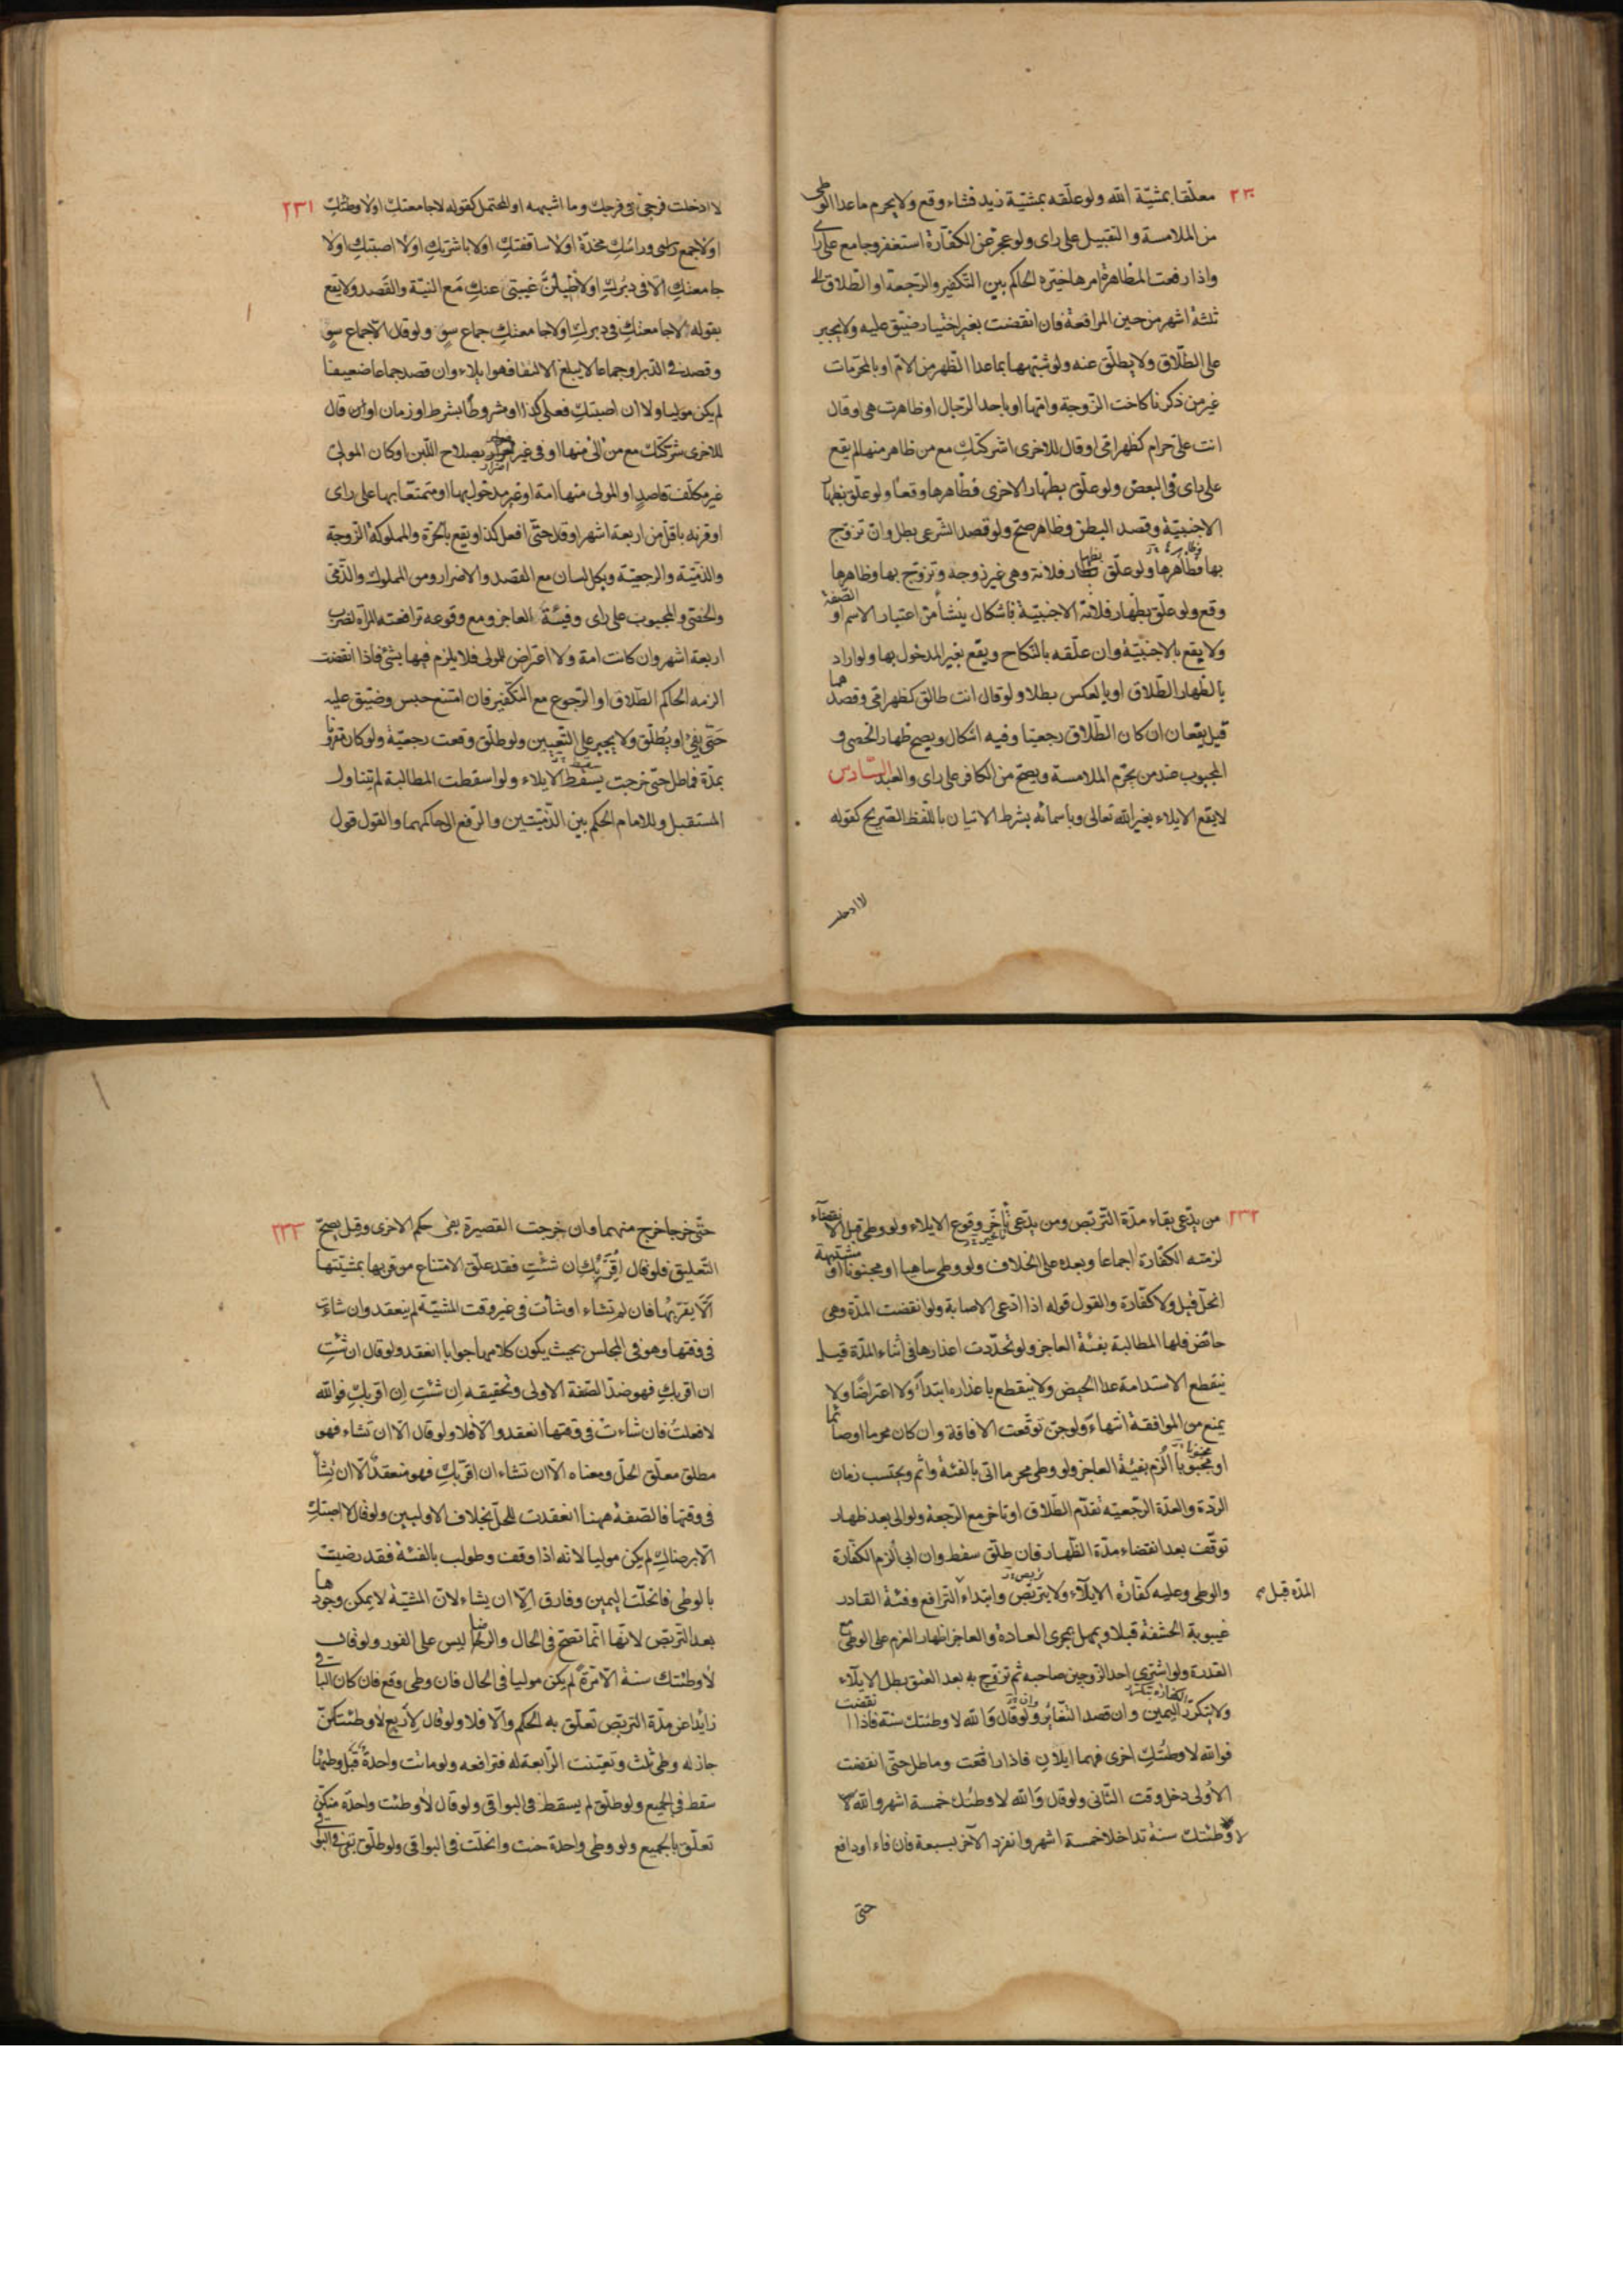 ٢٣٠
معلّقا بمشيّة الله ولو علّقه بمشيّة زيد فشاء وقع ولا يحرم ما عدا الوطى
من الملامسة والتقبيل على راى ولو عجز عن الكفّارة استغفر وجامع على راى
واذا رفعت المظاهرة امرها خيّره الحاكم بين التكفير والرّجعة او الطّلاق الى
ثلثة اشهر من حين المرافعة فان انقضت بغير اختيار ضيّق عليه ولا يجبر
على الطّلاق ولا يطلّق عنه ولو شبّهها بما عدا الظّهر من الامّ او بالمحرّمات
غير من ذكرنا كاخت الزّوجة وامّها او باحد الرّجال او ظاهرت هى او قال
انت علىّ حرام كظهر امّى او قال للاخرى اشركتكِ مع من ظاهر منها لم يقع
على راى فى البعض ولو علّق بظهار الاخرى فظاهرها وقعا ولو علّق بظهار
الاجنبيّة وقصد النطق وظاهر صحّ ولو قصد الشرعى بطل وان تزوّج
بها فظاهرها ولو علّق بظهار فلانة وهى غير زوجه وتزوّج بها وظاهرها
وقع ولو علّق بظهار فلانة الاجنبيّة فاشكال ينشأ من اعتبار الاسم او الصّفة
ولا يقع بالاجنبيّة وان علّقه بالنّكاح ويقع بغير المدخول بها ولو اراد
بالظّهار الطّلاق او بالعكس بطلا ولو قال انت طالق كظهر امّى وقصدهما
قيل يقعان ان كان الطّلاق رجعيّا وفيه اشكال ويصح ظهار الخصى و
المجبوب عند من يحرّم الملامسة ويصحّ من الكافر على راى والعبد السّادس
لا يقع الايلاء بغير الله تعالى وباسمائه بشرط الاتيان باللّفظ الصّريح كقوله
لا ادخلت
٢٣١
لا ادخلت فرجى فى فرجك وما اشبهه او المحتمل كقوله لا جامعتكِ او لا وطئتكِ
او لا جمع راسى وراسكِ مخدّة او لا ساقفتكِ او لا باشرتكِ او لا اصبتكِ او لا
جامعتكِ الّا فى دبركِ او لا طيلنَّ غيبتى عنكِ مع النيّة والقصد ولا يقع
بقوله لا جامعتكِ فى دبركِ او لا جامعتكِ جماع سوء ولو قال الّا جماع سوء
وقصد فى الدّبر او جماعا لا يبلغ الالتقا فهو ايلاء وان قصد جماعا ضعيفا
لم يكن موليا ولا ان اصبتكِ فعلى كذا او مشروطًا بشرط او زمان او ان قال
للاخرى شركتكِ مع من آلى منها او فى غير اضرار بصلاح اللّبن او كان المولى
غير مكلّف قاصدٍ او المولى منها امة او غير مدخول بها او متمتّعا بها على راى
او قرنه باقلّ من اربعة اشهر او قال حتّى افعل كذا ويقع بالحرّة والمملوكة الزّوجة
والذميّة والرجعيّة وبكل لسان مع القصد والاضرار ومن المملوك والذّمىّ
والخصى والمجبوب على راى وفيئة العاجز ومع وقوعه ترافعته المراة لضرب
اربعة اشهر وان كانت امة ولا اعتراض للمولى فلا يلزم فيها بشئ فاذا انقضت
الزمه الحاكم الطّلاق او الرّجوع مع التكفير فان امتنع حبس وضيّق عليه
حتّى يفئ او يطلّق ولا يجبر على التّعيين ولو طلّق وقعت رجعيّة ولو كان مقرونًا
بمدّة فماطل حتّى خرجت يسقط الايلاء ولو اسقطت المطالبة لم يتناول
المستقبل وللامام الحكم بين الذّميّتين والرّفع الى حاكمهما والقول قول
٢٣٢
من يدّعى بقاء مدّة التّربّص ومن يدّعى تاخّر وقوع الايلاء ولو وطى قبل الانقضاء
لزمته الكفّارة اجماعا وبعده على الخلاف ولو وطى ساهيا او مجنونا او مشتبهة
انحلّ قيل ولا كفّارة والقول قوله اذا ادّعى الاصابة ولو انقضت المدّة وهى
حائض فلها المطالبة بفئة العاجز ولو تجدّدت اعذارها فى اثناء المدّة قيل
ينقطع الاستدامة عدا الحيض ولا ينقطع باعذاره ابتداءً ولا اعتراضًا ولا
يمنع من الموافقة انتهاءً ولو جنّ توقّعت الافاقة وان كان محرما او صائما
او مجبوبا الزم بفيئة العاجز ولو وطى محرما اتى بالفئة واثم ويحتسب زمان
الردّة والعدّة الرّجعيّه تقدّم الطّلاق او تاخر مع الرّجعة ولو الى بعد ظهار
توقّف بعد انقضاء مدّة الظّهار فان طلّق سقط وان ابى الزم الكفّارة
والوطى وعليه كفّارة الايلاء ولا يتربّص وابتداء التّرافع وفئة القادر
المدّة قبل
غيبوبة الحشفة قبلا ويمهل بمجرى العادة والعاجز اظهار العزم على الوطى مع
القدرة ولو اشترى احد الزّوجين صاحبه ثم تزوّج به بعد العتق بطل الايلاء
ولا يتكرّر اليمين وان قصد التغاير ولو قال والله لا وطئتك سنة فاذا انقضت
فوالله لا وطئتكِ اخرى فهما ايلان فاذا رافعت وماطل حتّى انقضت
الاولى دخل وقت الثّانى ولو قال والله لا وطئتك خمسة اشهر والله لا
لا وطئتك سنة تداخلا خمسة اشهر وانفرد الآخر بسبعة فان فاء او دافع
حتّى
٢٣٣
حتّى خرجا خرج منهما وان خرجت القصيرة بقى حكم الاخرى وقيل يصحّ
التّعليق فلو قال اقربك ان شئتِ فقد علّق الامتناع من قربها بمشيّتها
الّا يقربها فان لم تشاء او شاءت فى غير وقت المشيّة لم ينعقد وان شاءت
فى وقتها وهو فى المجلس بحيث يكون كلامها جوابا انعقد ولو قال ان شئتِ
ان اقربكِ فهو ضدّ الصّفة الاولى وتحقيقه ان شئتِ ان اقربكِ فوالله
لا فعلتُ فان شاءت فى وقتها انعقد والّا فلا ولو قال الّا ان تشاء فهو
مطلق معلّق الحلّ ومعناه الّا ان تشاء ان اقربكِ فهو منعقد الّا ان تشاء
فى وقتها فالصّفة ههنا انعقدت للحلّ بخلاف الاوليين ولو قال لا اصبتكِ
الّا برضاكِ لم يكن موليا لانه اذا وقف وطولب بالفئة فقد رضيت
بالوطى فانحلّت اليمين وفارق الّا ان يشاء لانّ المشيّة لا يمكن وجودها
بعد التّربّص لانّها انّما تصحّ فى الحال والرضا ليس على الفور ولو قال
لا وطئتك سنة الّا مرّة لم يكن موليا فى الحال فان وطى وقع فان كان الباقى
زايدا عن مدّة التربّص تعلّق به الحكم والّا فلا ولو قال لاربع لا وطئتكنّ
جاز له وطى ثلث وتعيّنت الرّابعة له فترافعه ولو ماتت واحدة قبل وطيها
سقط فى الجميع ولو طلّق لم يسقط فى البواقى ولو قال لا وطئت واحدة منكنّ
تعلّق بالجميع ولو وطى واحدة حنث وانحلّت فى البواقى ولو طلّق بقى فى البواقى